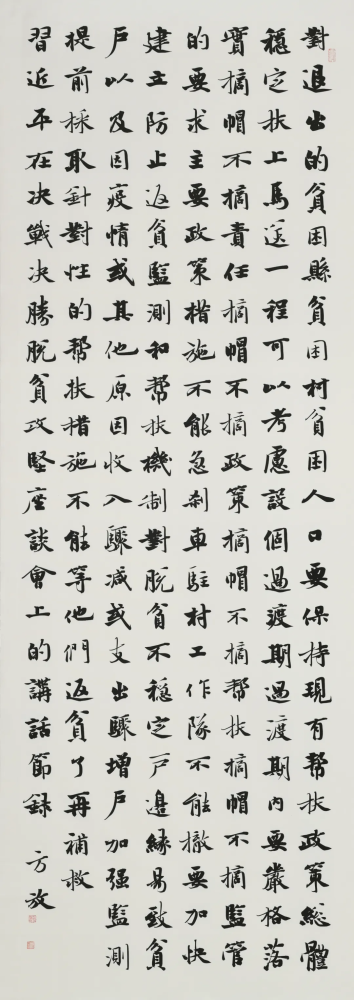 對退出的貧困縣貧困村貧困人口要保持現有帮扶政策總體
穩定扶上馬送一程可以考慮設個過渡期過渡期内要嚴格落
實摘帽不摘責任摘帽不摘政策摘帽不摘帮扶摘帽不摘監管
的要求主要政策措施不能急刹車駐村工作隊不能撤要加快
建立防止返貧監測和帮扶機制對脱貧不穩定户邊緣易致貧
户以及因疫情或其他原因收入驟减或支出驟增户加强監測
提前採取針對性的帮扶措施不能等他們返貧了再補救
習近平在决戰决勝脱貧攻堅座談會上的講話節録 方放